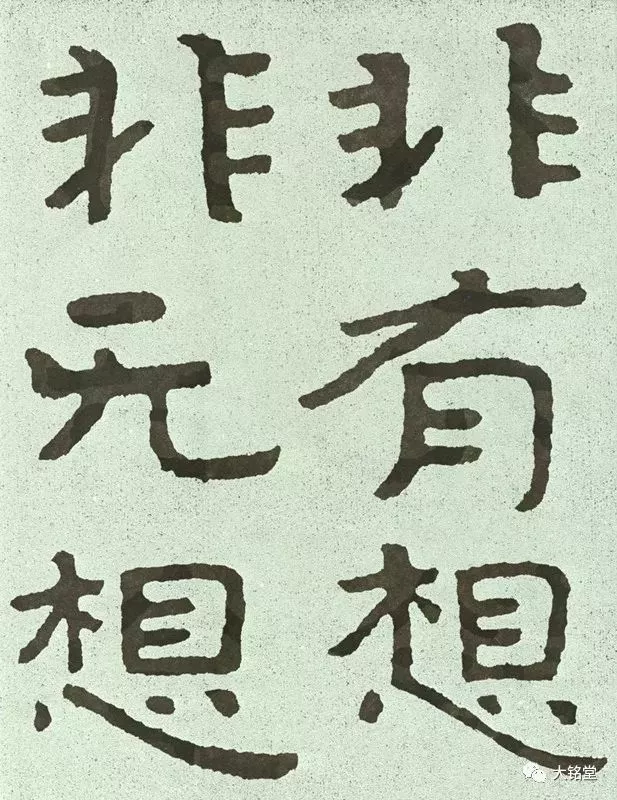 非有想
非无想
大铭堂